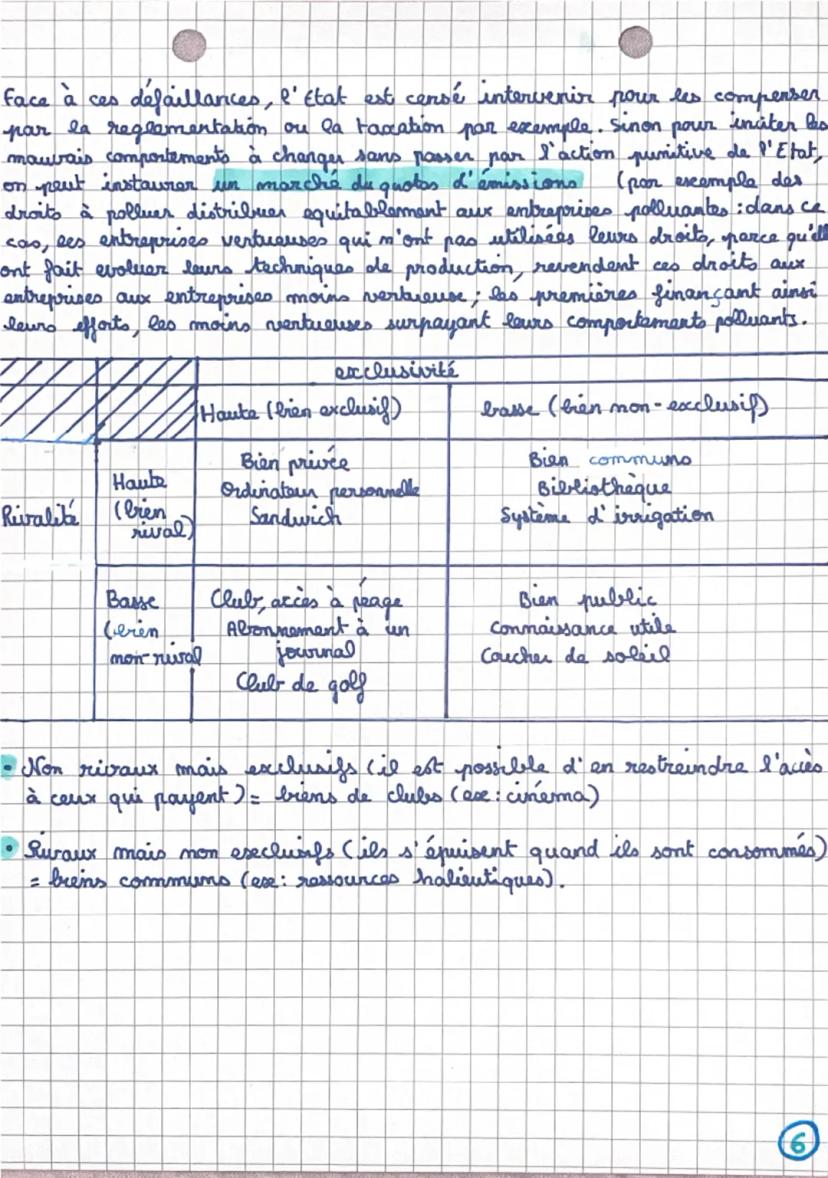 Face à ces défaillances, l'Etat est censé intervenir pour les compenser
par la reglementation ou la taxation par exemple. Sinon pour inciter les
mauvais comportements à changer sans passer par l'action punitive de l'Etat,
on peut instaurer un marché du quotas d'émissions (par exemple des
droits à polluer distribuer equitablement aux entreprises polluantes : dans ce
cas, les entreprises vertueuses qui n'ont pas utilisées leurs droits, parce qu'elle
ont fait evoluer leurs techniques de production, revendent ces droits aux
entreprises aux entreprises moins vertueuse ; les premières finançant ainsi
leurs efforts, les moins vertueuses surpayant leurs comportements polluants.
exclusivité
Haute (bien exclusif) basse (bien non-exclusif)
Rivalité
Haute
(bien
rival)
Bien privée
Ordinateur personnelle
Sandwich
Bien communs
Bibliothèque
Système d'irrigation
Basse
(bien
non-rival
Club, accès à péage
Abonnement à un
journal
Club de golf
Bien public
Connaissance utile
Coucher de soleil
• Non rivaux mais exclusifs (il est possible d'en restreindre l'accès
à ceux qui payent) = biens de clubs (ex : cinéma)
• Rivaux mais non exclusifs (ils s'épuisent quand ils sont consommés)
= biens communs (ex : ressources halieutiques).
6